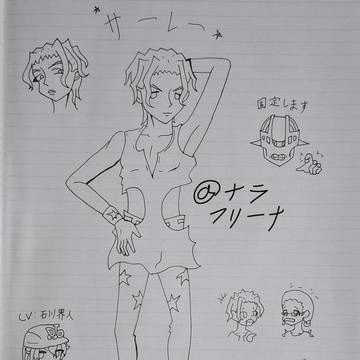 *サーレー*
固定します
@ナラ
フリーナ
CV:石川界人